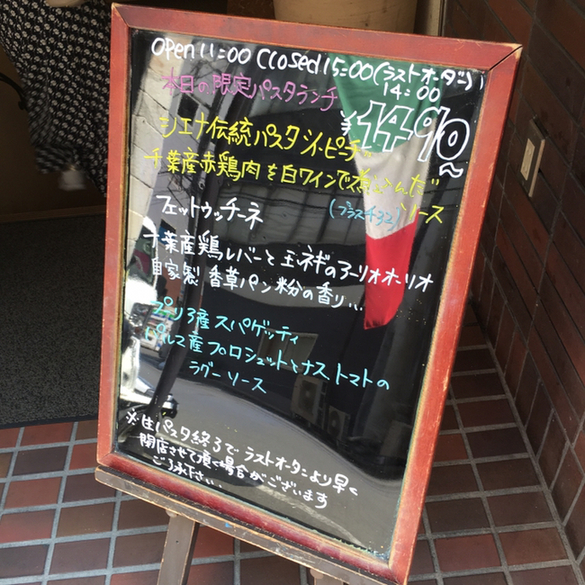 open 11:00 Cclosed 15:00(ラストオーダー)
14:00
本日の限定パスタランチ
¥1490～
シエナ伝統パスタ ピーチ
千葉産赤鶏肉を白ワインで煮込んだ
ソース
フェットゥッチーネ
千葉産鶏レバーと玉ネギのアーリオオーリオ
自家製 香草パン粉の香り...
プーリア産スパゲッティ
パルマ産プロシュットとナストマトの
ラグーソース
※生パスタ終了で ラストオーダーより早く
閉店させて頂く場合がございます
ご了承下さい